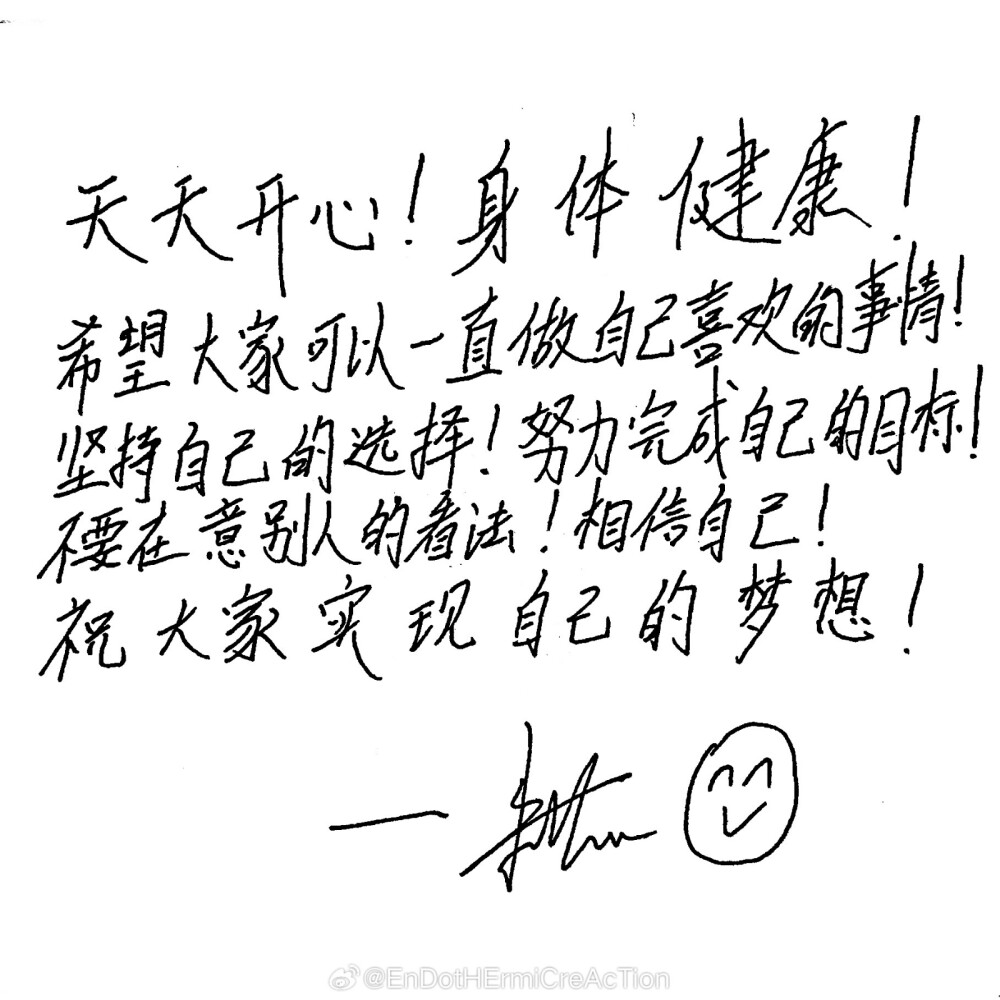 天天开心！身体健康！
希望大家可以一直做自己喜欢的事情！
坚持自己的选择！努力完成自己的目标！
不要在意别人的看法！相信自己！
祝大家实现自己的梦想！
—
@EnDotHErmiCreAcTion